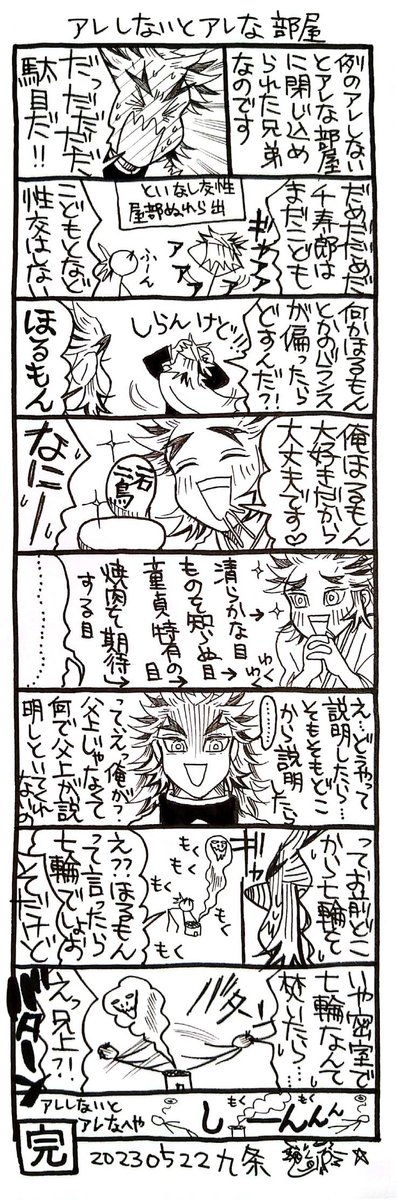 アレしないとアレな部屋
例のアレしない
とアレな部屋
に閉じ込め
られた兄弟
なのです
だっだだだだ
駄目だ!!
だめだだめだ
千寿郎は
まだこども
ギャアア
といなし友性
屋部ぬれら出
アアア
ふーん
こどもとなど
性交はない
何かほるもん
とかのバランス
が偏ったら
どすんだ?!
しらんけど!!
ほるもん
俺ほるもん
大好きだから
大丈夫です♡
一石二鳥
なにー
清らかな目→
ものを知らぬ目
童貞特有の目
焼肉を期待→
する目
わく
わく
え…どうやって
説明したら…
そもそもどこ
から説明したら
って、えっ俺が?
父上じゃなくて
何で父上が説
明しといてくれ
ないの
ってお前どこ
から七輪を
もく
もく
もく
もく
え??ほるもん
って言ったら
七輪でしょお
いや密室で
七輪なんて
焚いたら…
バターン
えっ兄上?!
バターン
もく
もく
しーんんん
アレしないと
アレなへや
完
20230522九条